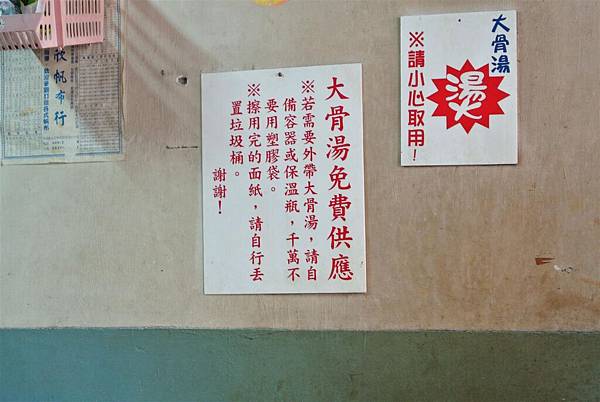 大骨湯
燙
※請小心取用！
大骨湯免費供應
※若需要外帶大骨湯，請自
備容器或保溫瓶，千萬不
要用塑膠袋。
※擦用完的面紙，請自行丟
置垃圾桶。
謝謝！
欣帆布行